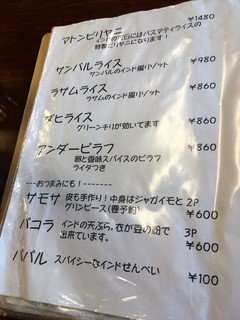 マトンビリヤニ ¥1480
インドの宮廷にはバスマティライスの
特製ビリヤニになります！
サンバルライス ¥980
サンバルのインド風リゾット
ラサムライス ¥860
ラサムのインド風リゾット
ダヒライス ¥860
グリーンチリが効いてます
アンダーピラフ ¥860
卵と香味スパイスのピラフ
ライタつき
---おつまみにも！-------
サモサ 皮も手作り！中身はジャガイモと 2P
グリンピース(要予約) ¥600
パコラ インドの天ぷら。衣が豆の粉で 3P
出来ています。 ¥600
パパル スパイシーなインドせんべい ¥100